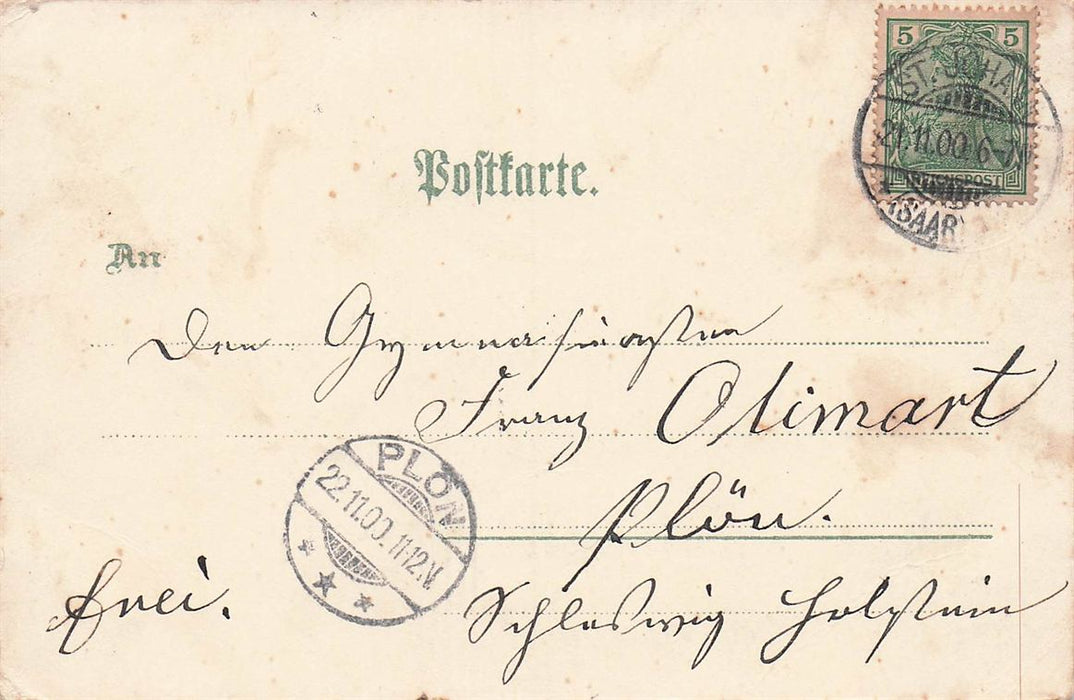 5 5
REICHSPOST
ST. JOHA
21.11.00. 6-7
(SAAR
Postkarte.
An
Den Gymnasiasten
Franz Olimart
Plön.
Schleswig Holstein
frei.
PLÖN
22.11.00. 11-12.V.